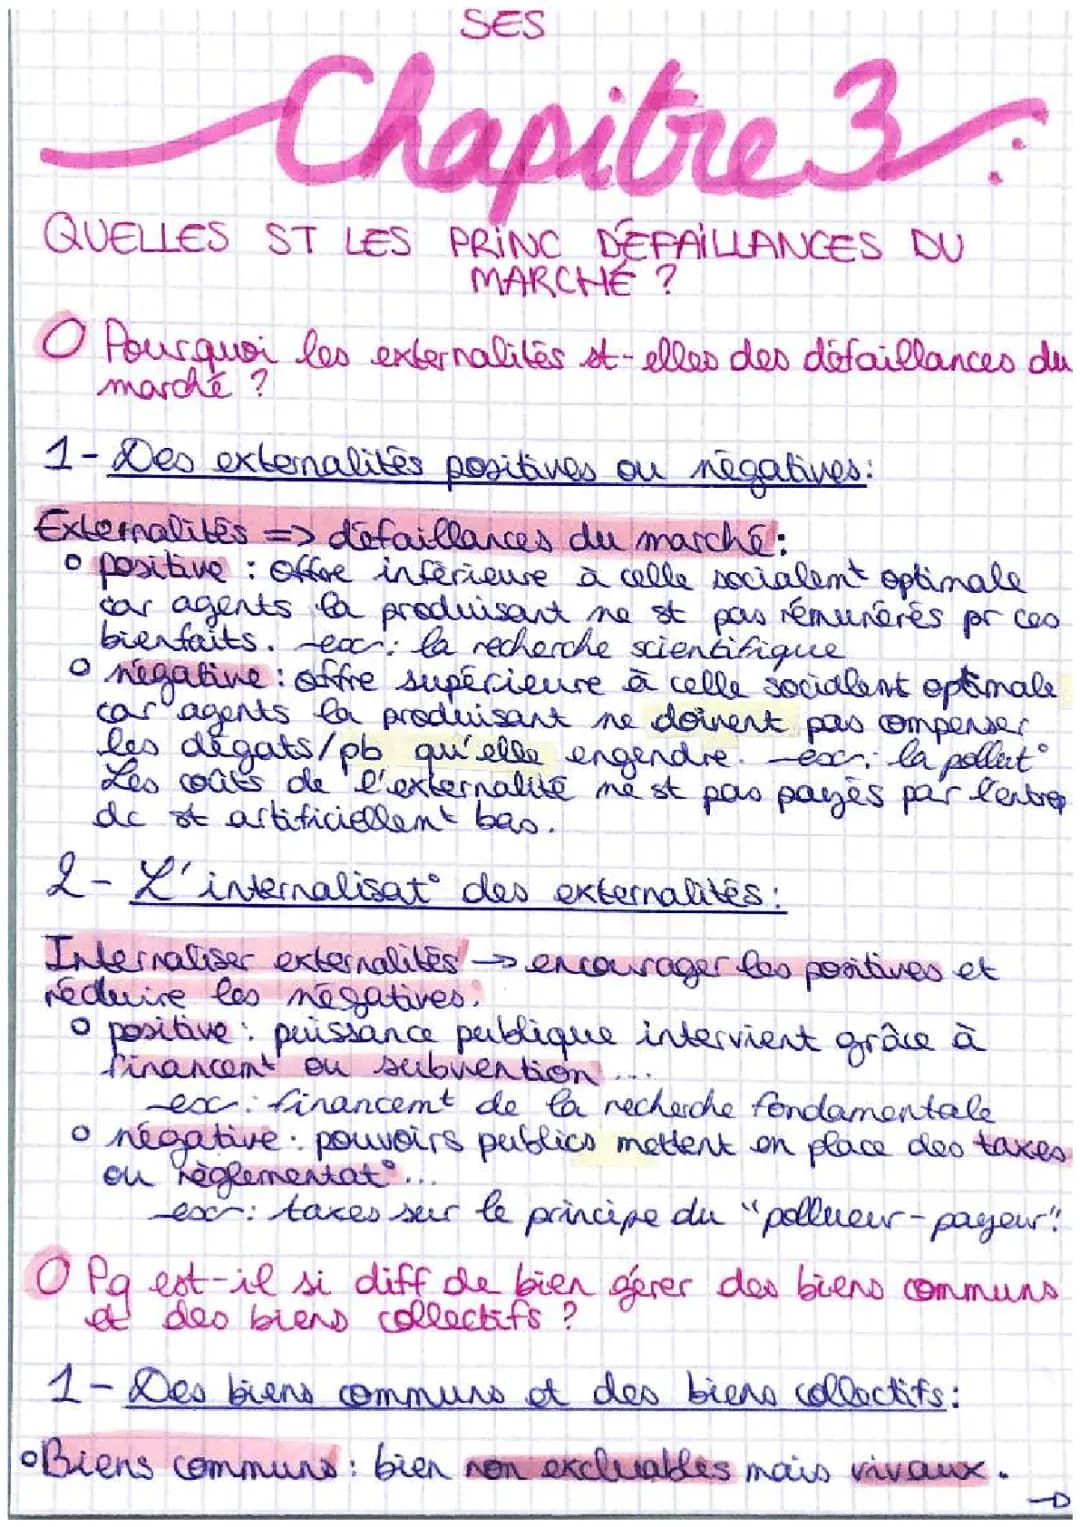 SES
Chapitre 3 :
QUELLES ST LES PRINC DÉFAILLANCES DU
MARCHÉ ?
O Pourquoi les externalités st-elles des défaillances du
marché ?
1- Des externalités positives ou négatives:
Externalités => défaillances du marché:
o positive : offre inférieure à celle socialemt optimale
car agents la produisant ne st pas rémunérés pr ces
bienfaits. -ex: la recherche scientifique
o négative : offre supérieure à celle socialemt optimale
car agents la produisant ne doivent pas compenser
les dégats/pb qu'elle engendre. -ex: la pollut°
Les coûts de l'externalité ne st pas payés par l'entrep
dc st artificiellemt bas.
2- L'internalisat° des externalités:
Internaliser externalités -> encourager les positives et
réduire les négatives.
o positive : puissance publique intervient grâce à
financemt ou subvention ...
-ex: financemt de la recherche fondamentale
o négative : pouvoirs publics mettent en place des taxes
ou règlementat°...
-ex: taxes sur le principe du "pollueur-payeur"
O Pq est-il si diff de bien gérer des biens communs
et des biens collectifs ?
1- Des biens communs et des biens collectifs:
o Biens communs : bien non excluables mais rivaux.
→